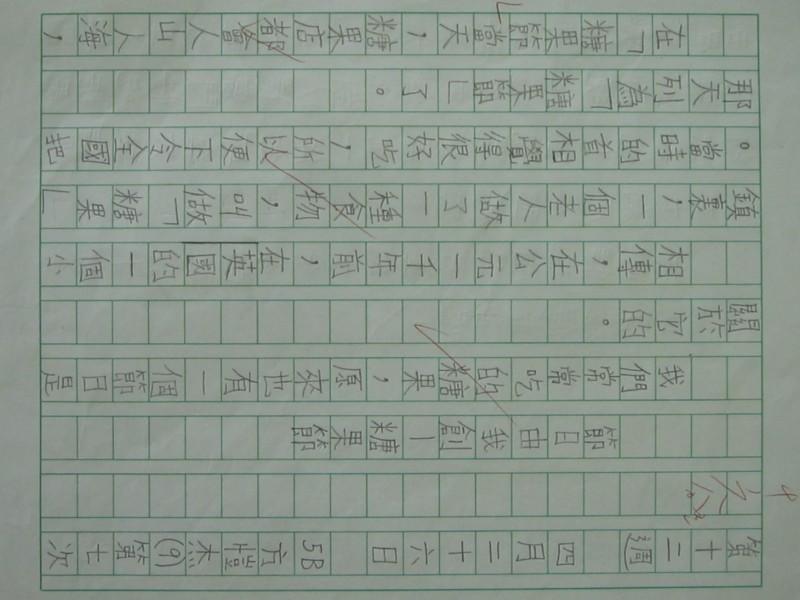 第十二週 四月二十六日 5B 方愷杰 (9) 第七次
節日由我創—糖果節
我們常常吃的糖果，原來也有一個節日是
關於它的。
相傳，在公元一千年前，在英國的一個小
鎮裏，一個老人做了一種食物，叫做「糖果」
。當時的首相覺得很好吃，所以便下令全國把
那天列為「糖果節」了。
在「糖果節」當天，糖果店都會人山人海，